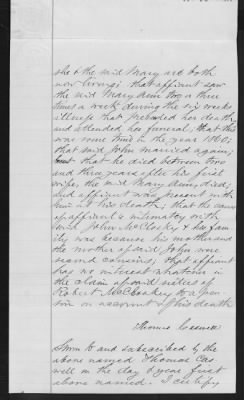 she & the said Mary are both
now living; that affiant saw
the said Mary Ann two or three
times a week during the six weeks
illness that preceded her death
and attended her funeral; that this
was some time in the year 1860;
that said John married again;
but that he died between two
and three years after his first
wife, the said Mary Ann, died;
and affiant was present with
him at his death; that the cause
of affiant's intimacy with
said John McCloskey & his fam
ily was because his mother and
the mother of said John were
second cousins; that affiant
has no interest whatever in
the claim of said sisters of
Robert McCloskey to a pen
sion on account of his death
Thomas
Sworn to and subscribed by the
above named Thomas Cas
well on the day & year first
above named. I certify